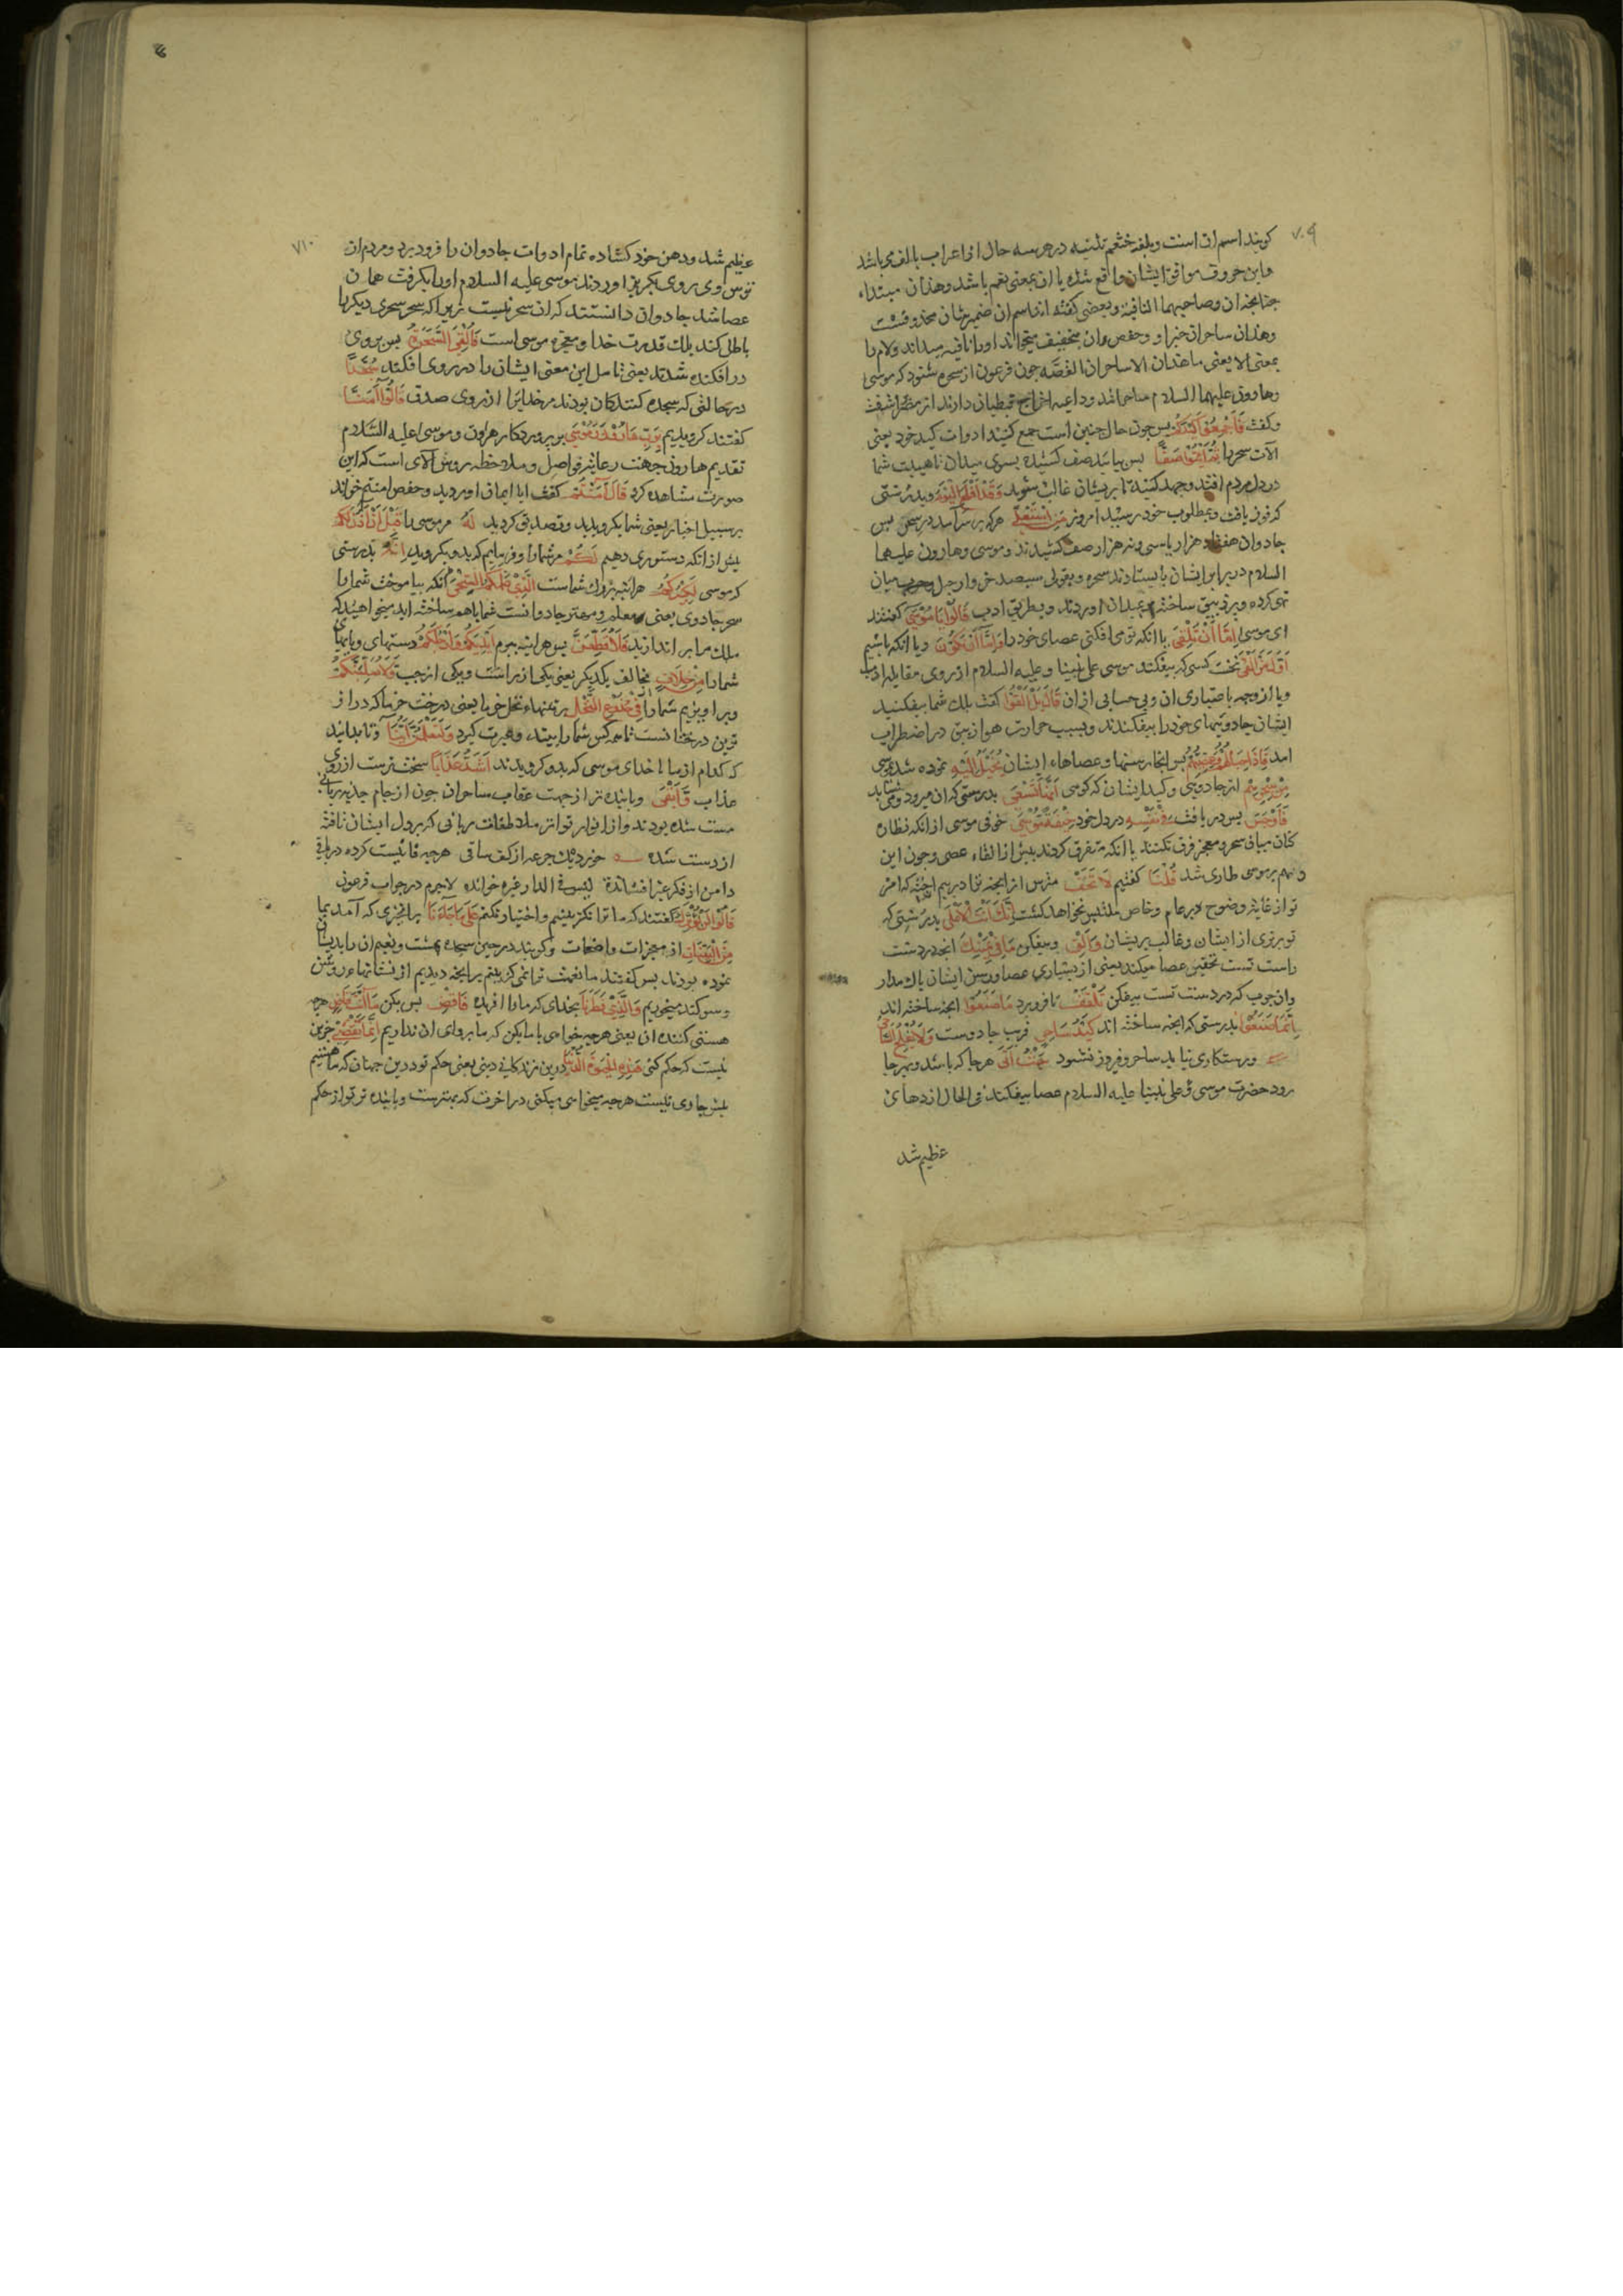 ۷۰۹
کویند اسم ان است و بلغة خثعم تثنیه در هر سه حال اعراب بالف می باشد
و ابن حروف موافق ایشان واقع شده یا ان بمعنی نعم باشد و هذان مبتداء
و هذان ساحران خبر او و حفص ان بتخفیف میخواند او را نافیه میداند و لام را
بمعنی الا یعنی ما هذان الا ساحران القصه چون فرعون از سحره شنود که موسی
و هارون علیهما السلام ساحرانند و داعیه اخراج قبطیان دارند
و کفت فَاَجْمِعُوا کَیْدَکُمْ پس چون حال چنین است جمع کنید ادوات کید خود یعنی
آلات سحر را ثُمَّ ائْتُوا صَفًّا پس بیایید صف کشیده بسوی میدان تا هیبت شما
در دل مردم افتد و جهد کنید تا بریشان غالب شوید وَقَدْ اَفْلَحَ الْیَوْمَ و بدرستی
که فوز یافت و بمطلوب خود رسید امروز مَنِ اسْتَعْلٰی هر که بر سر آمد در سحر پس
جادوان هفتاد هزار یا سی و نه هزار صف کشیدند و موسی و هارون علیهما
السلام در برابر ایشان بایستادند سحره و بقولی سیصد خروار حبل و چوب میان
تهی کرده و پر زیبق ساخته بمیدان اوردند و بطریق ادب قَالُوا یَا مُوسٰی کفتند
ای موسی اِمَّا اَنْ تُلْقِیَ یا انکه تو می افکنی عصای خود را وَاِمَّا اَنْ نَکُونَ و یا انکه باشیم
اَوَّلَ مَنْ اَلْقٰی نخست کسی که بیفکند موسی علی نبینا و علیه السلام از روی مقابله ادب
و یا از وجه بی اعتباری ان و بی حسابی از ان قَالَ بَلْ اَلْقُوا کفت بلک شما بیفکنید
ایشان جادوییهای خود را بیفکندند و بسبب حرارت هوا زیبق در اضطراب
امد فَاِذَا حِبَالُهُمْ وَعِصِیُّهُمْ پس انجا رسنها و عصاهاء ایشان یُخَیَّلُ اِلَیْهِ نموده شد بموسی
مِنْ سِحْرِهِمْ از جادویی و کید ایشان که کوئی اَنَّهَا تَسْعٰی بدرستی که ان میرود و می شتابد
فَاَوْجَسَ پس دریافت فِی نَفْسِهِ در دل خود خِیفَةً مُوسٰی خوفی موسی از انکه نظاره
کنان میان سحر و معجزه فرق نکنند یا انکه متفرق کردند پیش از القاء عصی و چون این
وهم بر موسی طاری شد قُلْنَا کفتیم لَا تَخَفْ مترس از انچه ترا در بیم انداخته که امر
تو از غایة وضوح بر عام و خاص ملتبس نخواهد کشت اِنَّکَ اَنْتَ الْاَعْلٰی بدرستی که
تو برتری از ایشان و غالب بریشان وَاَلْقِ و بیفکن مَا فِی یَمِینِکَ انچه در دست
راست تست تحقیر عصا میکند یعنی از بسیاری عصا و رسن ایشان باک مدار
و ان چوب که در دست تست بیفکن تَلْقَفْ تا فرو برد مَا صَنَعُوا انچه ساخته اند
اِنَّمَا صَنَعُوا بدرستی که انچه ساخته اند کَیْدُ سَاحِرٍ فریب جادوست وَلَا یُفْلِحُ السَّاحِرُ
و رستکاری نیابد ساحر و فیروز نشود حَیْثُ اَتٰی هر جا که باشد و بهر جا
رود حضرت موسی علی نبینا و علیه السلام عصا بیفکند فی الحال اژدهای
عظیم شد
۷۱۰
عظیم شد و دهن خود کشاده تمام ادوات جادوان را فرو برد و مردم ان
ترس وی روی بکریز اوردند موسی علیه السلام او را بکرفت همان
عصا شد جادوان دانستند که ان سحر نیست زیرا که سحر سحری دیکر را
باطل نکند بلک قدرت خدا و معجزه موسی است فَاُلْقِیَ السَّحَرَةُ پس بروی
در افکنده شدند یعنی تامل این معنی ایشان را در روی افکند سُجَّدًا
در حالتی که سجده کنندکان بودند مر خدایرا از روی صدق قَالُوا اٰمَنَّا
کفتند کرویدیم بِرَبِّ هَارُونَ وَمُوسٰی به پروردکار هارون و موسی علیه السلام
تقدیم هارون جهت رعایة فواصل و ملاحظه روش الآی است که این
صورت مشاهده کرد قَالَ اٰمَنْتُمْ کفت ایا ایمان اوردید و حفص امنتم خواند
بر سبیل اخبار یعنی شما بکرویدید و تصدیق کردید لَهُ مر موسی را قَبْلَ اَنْ اٰذَنَ لَکُمْ
پیش از انکه دستوری دهیم لَکُمْ مر شما را و فرمایم که بدو بکروید اِنَّهُ بدرستی
که موسی لَکَبِیرُکُمُ هراینه بزرک شماست الَّذِی عَلَّمَکُمُ السِّحْرَ انکه بیاموخت شما را
سحر جادوی یعنی معلم و مهتر جادوانست شما با هم ساخته اید میخواهید که
ملک مرا بر اندازید فَلَاُقَطِّعَنَّ پس هراینه ببرم اَیْدِیَکُمْ وَاَرْجُلَکُمْ دستهای و پایهای
شما را مِنْ خِلَافٍ مخالف یکدیکر یعنی یکی از راست و یکی از چپ وَلَاُصَلِّبَنَّکُمْ
و بر اویزیم شما را فِی جُذُوعِ النَّخْلِ بر تنهاء نخل خرما یعنی درخت خرما که دراز
ترین درختانست تا همه کس شما را ببیند و عبرت کیرد وَلَتَعْلَمُنَّ اَیُّنَا و تا بدانید
که کدام از ما یا خدای موسی که بدو کرویدند اَشَدُّ عَذَابًا سخت ترست از روی
عذاب وَاَبْقٰی و پاینده تر از جهت عقاب ساحران چون از جام جذبه ربانی
مست شده بودند و از انوار تواتر ملاطفات ربانی که بر دل ایشان تافته
از دست شده خورد یک جرعه از کف ساقی هر چه فانیست کرده در باقی
دامن از فکر غیر افشانده لیس فی الدار غیره خوانده لاجرم در جواب فرعون
قَالُوا لَنْ نُؤْثِرَکَ کفتند که ما ترا نکزینیم و اختیار نکنم عَلٰی مَا جَاءَنَا بر انچیزی که آمد بما
مِنَ الْبَیِّنَاتِ از معجزات واضحات و کویند در حین سجده بهشت و نعیم ان را بدیشان
نموده بودند پس کفتند ما نعمت ترا نمی کزینیم بر انچه دیدیم از نشانهاء روشن
و سوکند میخوریم وَالَّذِی فَطَرَنَا بخدای که ما را افریده فَاقْضِ پس بکن مَا اَنْتَ قَاضٍ هر چه
هستی کننده ان یعنی هر چه میخواهی با ما بکن که ما پروای ان نداریم اِنَّمَا تَقْضِی جزین
نیست که حکم کنی هٰذِهِ الْحَیٰوةَ الدُّنْیَا درین زندکانی دنیی یعنی حکم تو درین جهان که ما هستیم
بیش جاری نیست هر چه میخواهی میکنی در اخرت که بهترست و پاینده تر تو از حکم